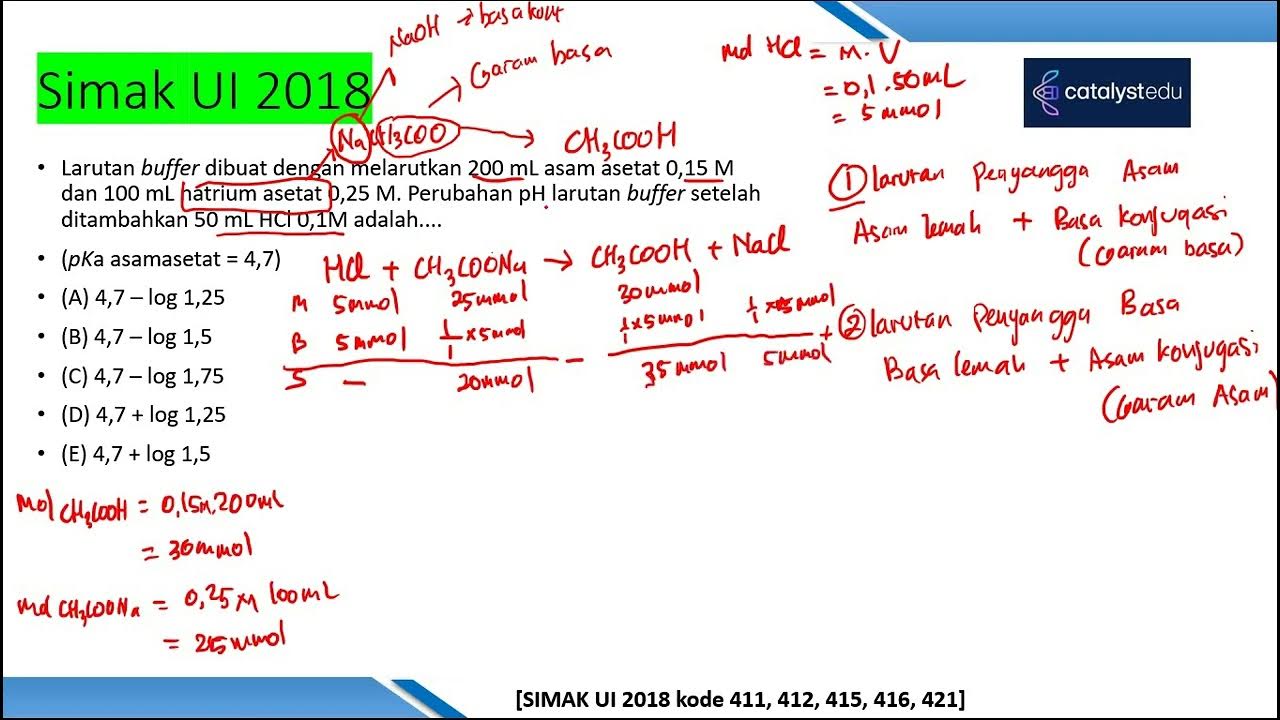 Simak UI 2018
NaOH → basa kuat
Garam basa
NaCH₃COO
CH₃COOH
mol HCl = M.V
= 0,1 . 50mL
= 5 mmol
catalystedu
• Larutan buffer dibuat dengan melarutkan 200 mL asam asetat 0,15 M
dan 100 mL natrium asetat 0,25 M. Perubahan pH larutan buffer setelah
ditambahkan 50 mL HCl 0,1M adalah....
• (pKa asamasetat = 4,7)
• (A) 4,7 – log 1,25
• (B) 4,7 – log 1,5
• (C) 4,7 – log 1,75
• (D) 4,7 + log 1,25
• (E) 4,7 + log 1,5
HCl + CH₃COONa → CH₃COOH + NaCl
M 5mmol 25mmol 30mmol
B 5mmol 1/1 x 5mmol 1/1 x 5mmol 1/1 x 5mmol
S - 20mmol 35mmol 5mmol
① larutan Penyangga Asam
Asam lemah + Basa konjugasi
(Garam basa)
② larutan Penyangga Basa
Basa lemah + Asam konjugasi
(Garam Asam)
Mol CH₃COOH = 0,15M.200ml
= 30mmol
mol CH₃COONa = 0,25 x 100mL
= 25mmol
[SIMAK UI 2018 kode 411, 412, 415, 416, 421]